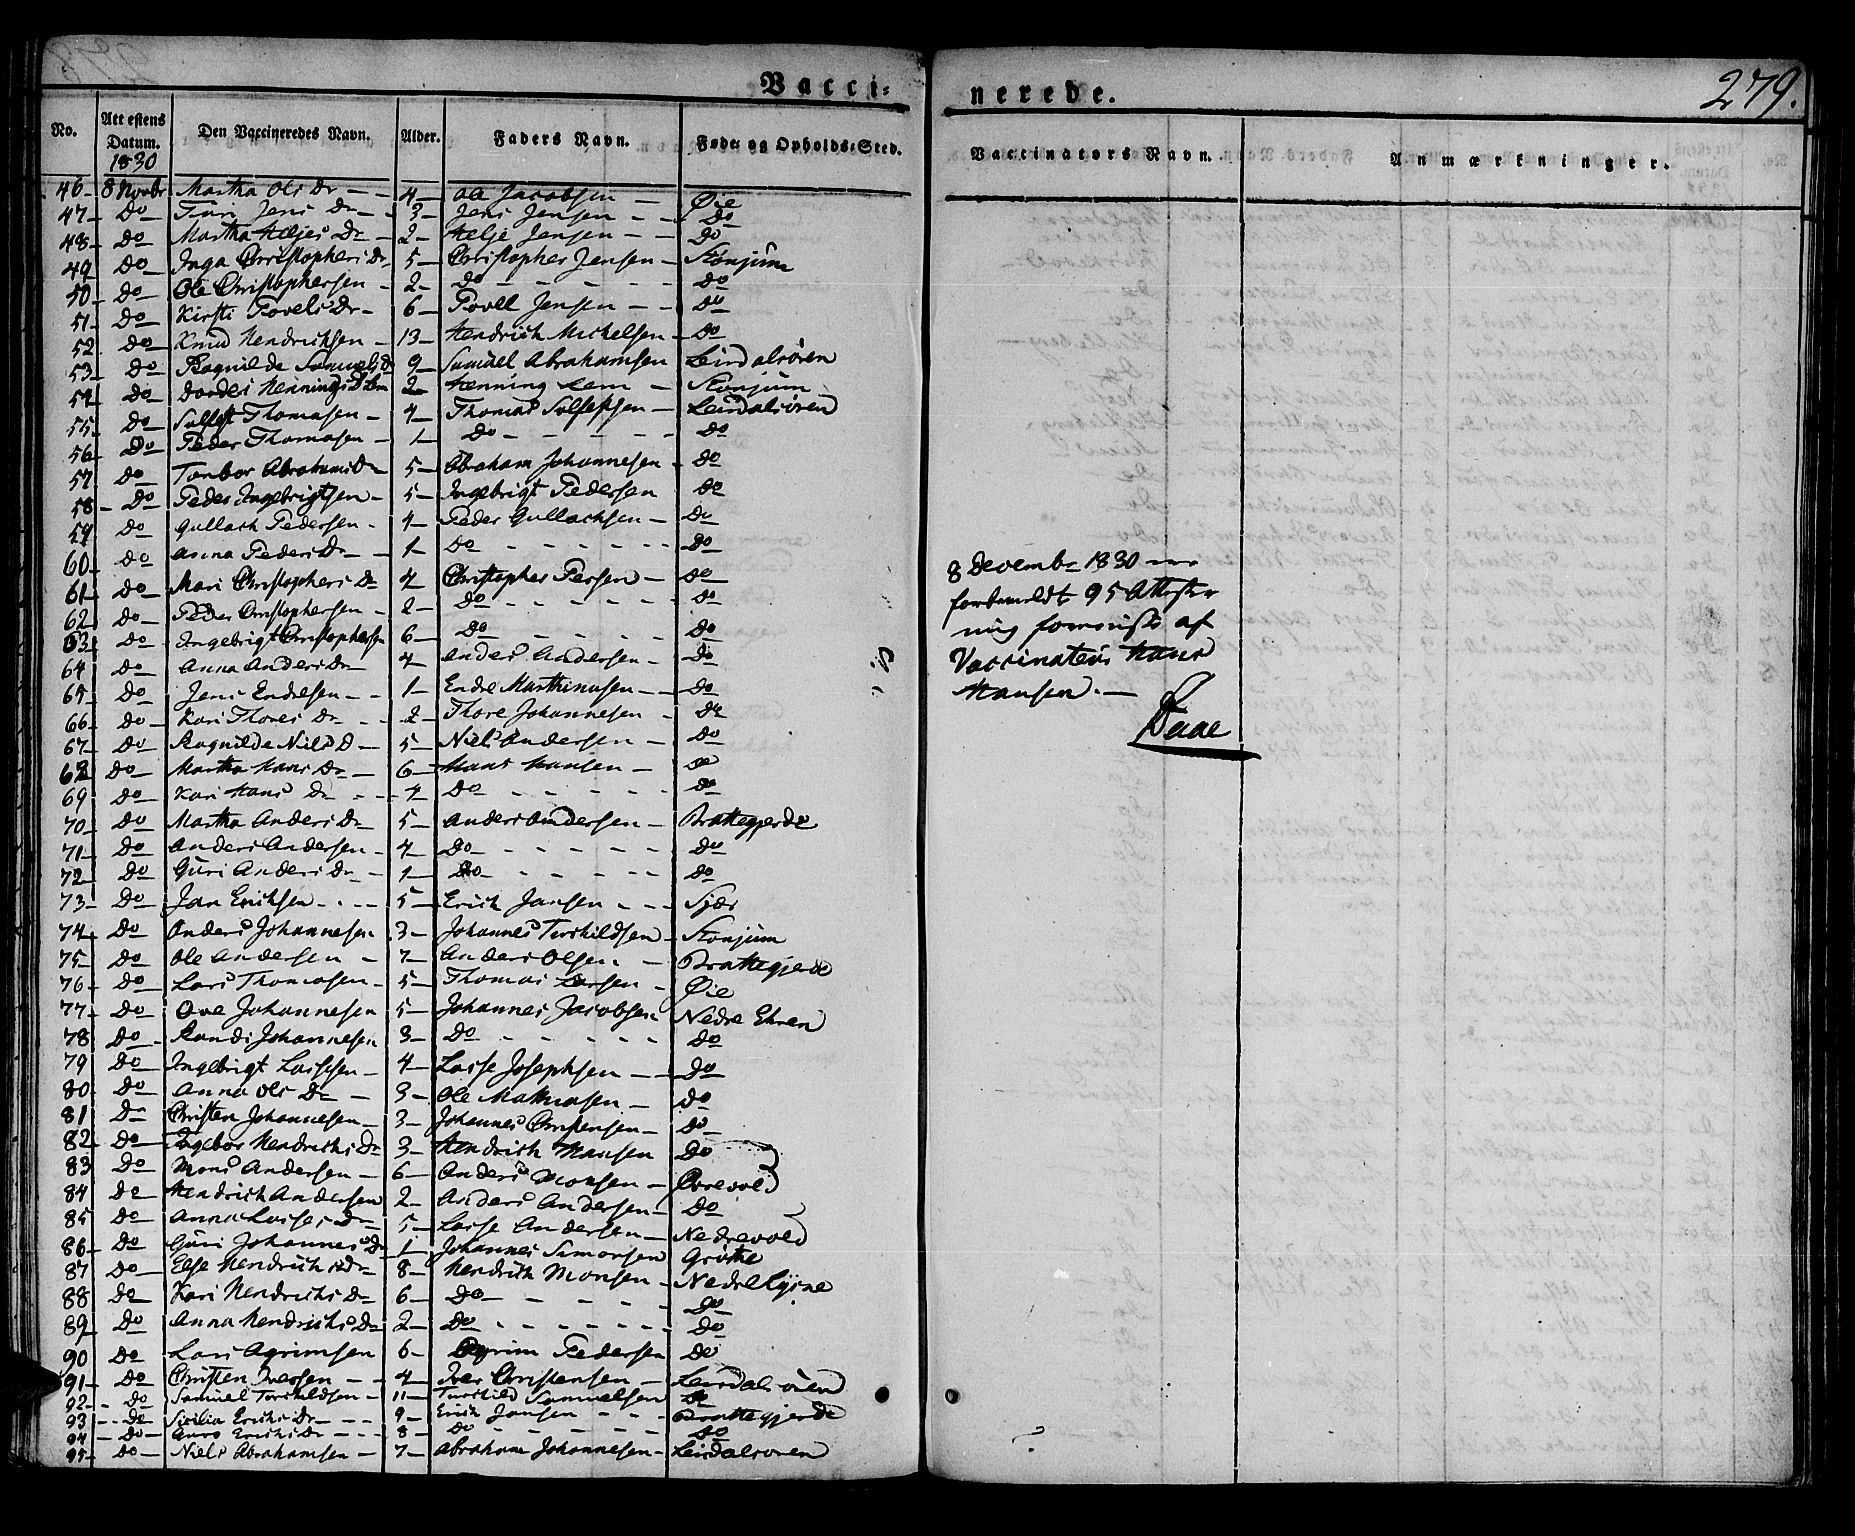 Vacci-
nerede.
279.
No. Attestens Datum. Den Vaccineredes Navn. Alder. Faders Navn. Føde- og Opholds-Sted. Vaccinatørs Navn. Anmærkninger.
1830
46 8 Novbr Martha Ols Dr 4 Ole Jacobsen Øie
47 Do Turi Jens Dr 3 Jens Jensen Do
48 Do Martha Heljes Dr 2 Helje Jensen Do
49 Do Inga Christophers Dr 5 Christopher Jensen Stønjum
50 Do Ole Christophersen 2 Do Do
51 Do Kirsti Povels Dr 6 Povell Jensen Do
52 Do Knud Hendrichsen 13 Hendrich Michelsen Do
53 Do Ragnilde Samuels Dr 9 Samuel Abrahamsen Leirdalsøren
54 Do Hennings 2 Henning Lem Stønjum
55 Do Thomasen 4 Thomas Leirdalsøren
56 Do Peder Thomasen 1 Do Do
57 Do Torbor Abrahams Dr 5 Abraham Johannesen Do
58 Do Peder Ingebrigtsen 5 Ingebrigt Pedersen Do
59 Do Gullach Pedersen 4 Peder Gullachsen Do
60 Do Anna Peders Dr 1 Do Do
61 Do Mari Christophers Dr 4 Christopher Persen Do
62 Do Peder Christophersen 2 Do Do
63 Do Ingebrigt Christophersen 6 Do Do
64 Do Anna Anders Dr 4 Anders Andersen Do
65 Do Jens Endresen 1 Endre Marthinusen Do
66 Do Kari Thores Dr 2 Thore Johannesen Do
67 Do Ragnilde Niels D 5 Niels Andersen Do
68 Do Martha Hans Dr 6 Hans Hansen Do
69 Do Kari Hans Dr 4 Do Do
70 Do Martha Anders Dr 5 Anders Andersen Brattegjerde
71 Do Anders Andersen 4 Do Do
72 Do Guri Anders Dr 1 Do Do
73 Do Jan Erichsen 5 Erich Jansen
74 Do Anders Johannesen 3 Johannes Torchildsen Stønjum
75 Do Ole Andersen 7 Anders Olsen Brattegjerde
76 Do Lars Thomasen 5 Thomas Larsen Øie
77 Do Ove Johannesen 5 Johannes Jacobsen Nedre Ehren
78 Do Randi Johannesen 3 Do Do
79 Do Ingebrigt Lassesen 4 Lasse Josephsen Do
80 Do Anna Ols Dr 3 Ole Mathiasen Do
81 Do Christen Johannesen 3 Johannes Christensen Do
82 Do Ingebor Hendrichs Dr 3 Hendrich Hansen Do
83 Do Mons Andersen 6 Anders Monsen Øvrevold
84 Do Hendrich Andersen 2 Anders Andersen Do
85 Do Anna Lasses Dr 5 Lasse Andersen Nedrevold
86 Do Guri Johannes Dr 1 Johannes Simonsen Grøthe
87 Do Else Hendrichs Dr 8 Hendrich Monsen Nedre
88 Do Kari Hendrichs Dr 6 Do Do
89 Do Anna Hendrichs Dr 2 Do Do
90 Do Lars Agrimsen 6 Agrim Pedersen Do
91 Do Christen Iversen 4 Iver Christensen Leirdalsøren
92 Do Samuel Torchildsen 11 Torchild Samuelsen Do
93 Do Sicilia Erichs Dr 9 Erich Jansen Brattegjerde
94 Do Erichs Dr 8 Do Do
95 Do Niels Abrahamsen 7 Abraham Johannesen Leirdalsøren
8 Decembr 1830
95 Atteste
af
Vaccinateur Hans
Hansen.
Daae